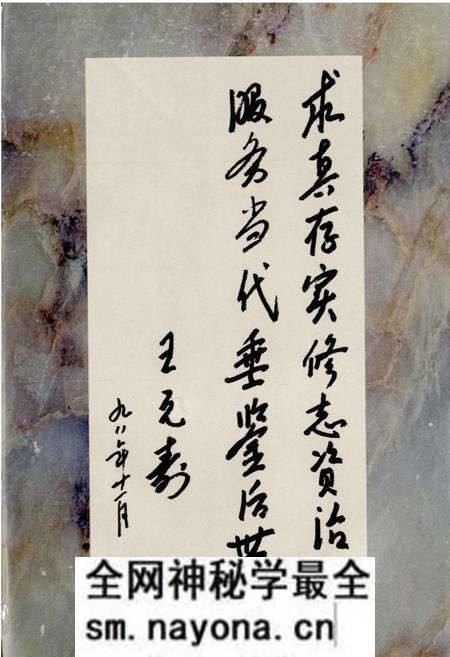 求真存实修志资治
服务当代垂鉴后世
王克寿
九八年十一月
全网神秘学最全
sm.nayona.cn